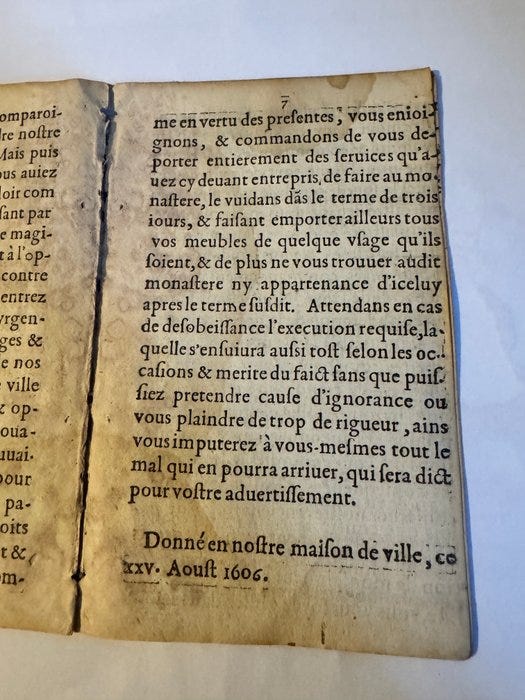 omparoi-
dre noſtre
Mais puis
ous auiez
loir com
ſant par
e magi-
t à l'op-
contre
entrez
vrgen-
ges &
e nos
ville
& op-
oua-
uuai-
pour
pa-
oits
t &,
om-
7
me en vertu des preſentes, vous enioi-
gnons, & commandons de vous de-
porter entierement des ſeruices qu'a-
uez cy deuant entrepris, de faire au mo-
naſtere, le vuidans dãs le terme de trois
iours, & faiſant emporter ailleurs tous
vos meubles de quelque vſage qu'ils
ſoient, & de plus ne vous trouuer audit
monaſtere ny appartenance d'iceluy
apres le terme ſuſdit. Attendans en cas
de deſobeiſſance l'execution requiſe, la-
quelle s'enſuiura auſsi toſt ſelon les oc-
caſions & merite du faict ſans que puiſ-
ſiez pretendre cauſe d'ignorance ou
vous plaindre de trop de rigueur, ains
vous imputerez à vous-meſmes tout le
mal qui en pourra arriuer, qui ſera dict
pour voſtre aduertiſſement.
Donné en noſtre maiſon de ville, ce
xxv. Aouſt 1606.